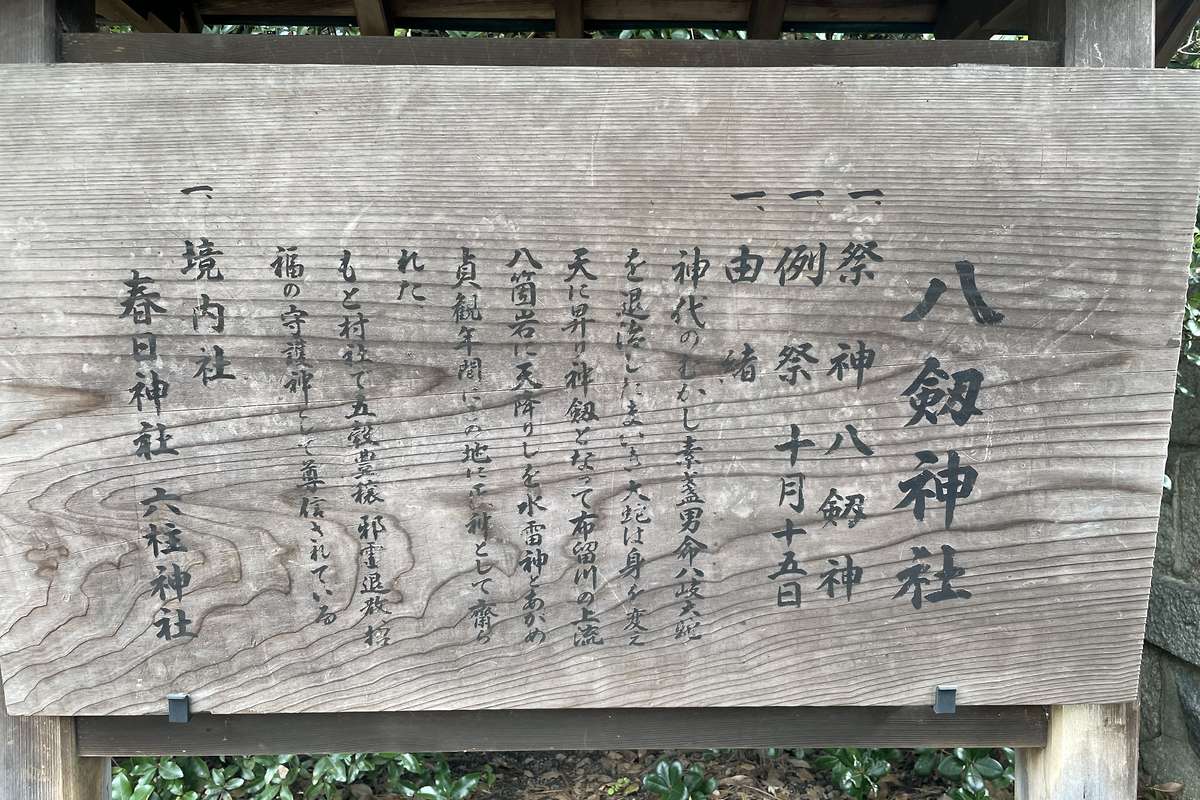 八劔神社
一、祭神 八劔神
一、例祭 十月十五日
一、由緒
神代のむかし素盞男命八岐大蛇
を退治したまいき大蛇は身を変え
天に昇り神劔となって布留川の上流
八箇岩に天降りしを水雷神とあがめ
貞観年間にこの地に氏神として齋ら
れた
もと村社で五穀豊穣邪霊退散招
福の守護神として尊信されている
一、境内社
春日神社 六柱神社